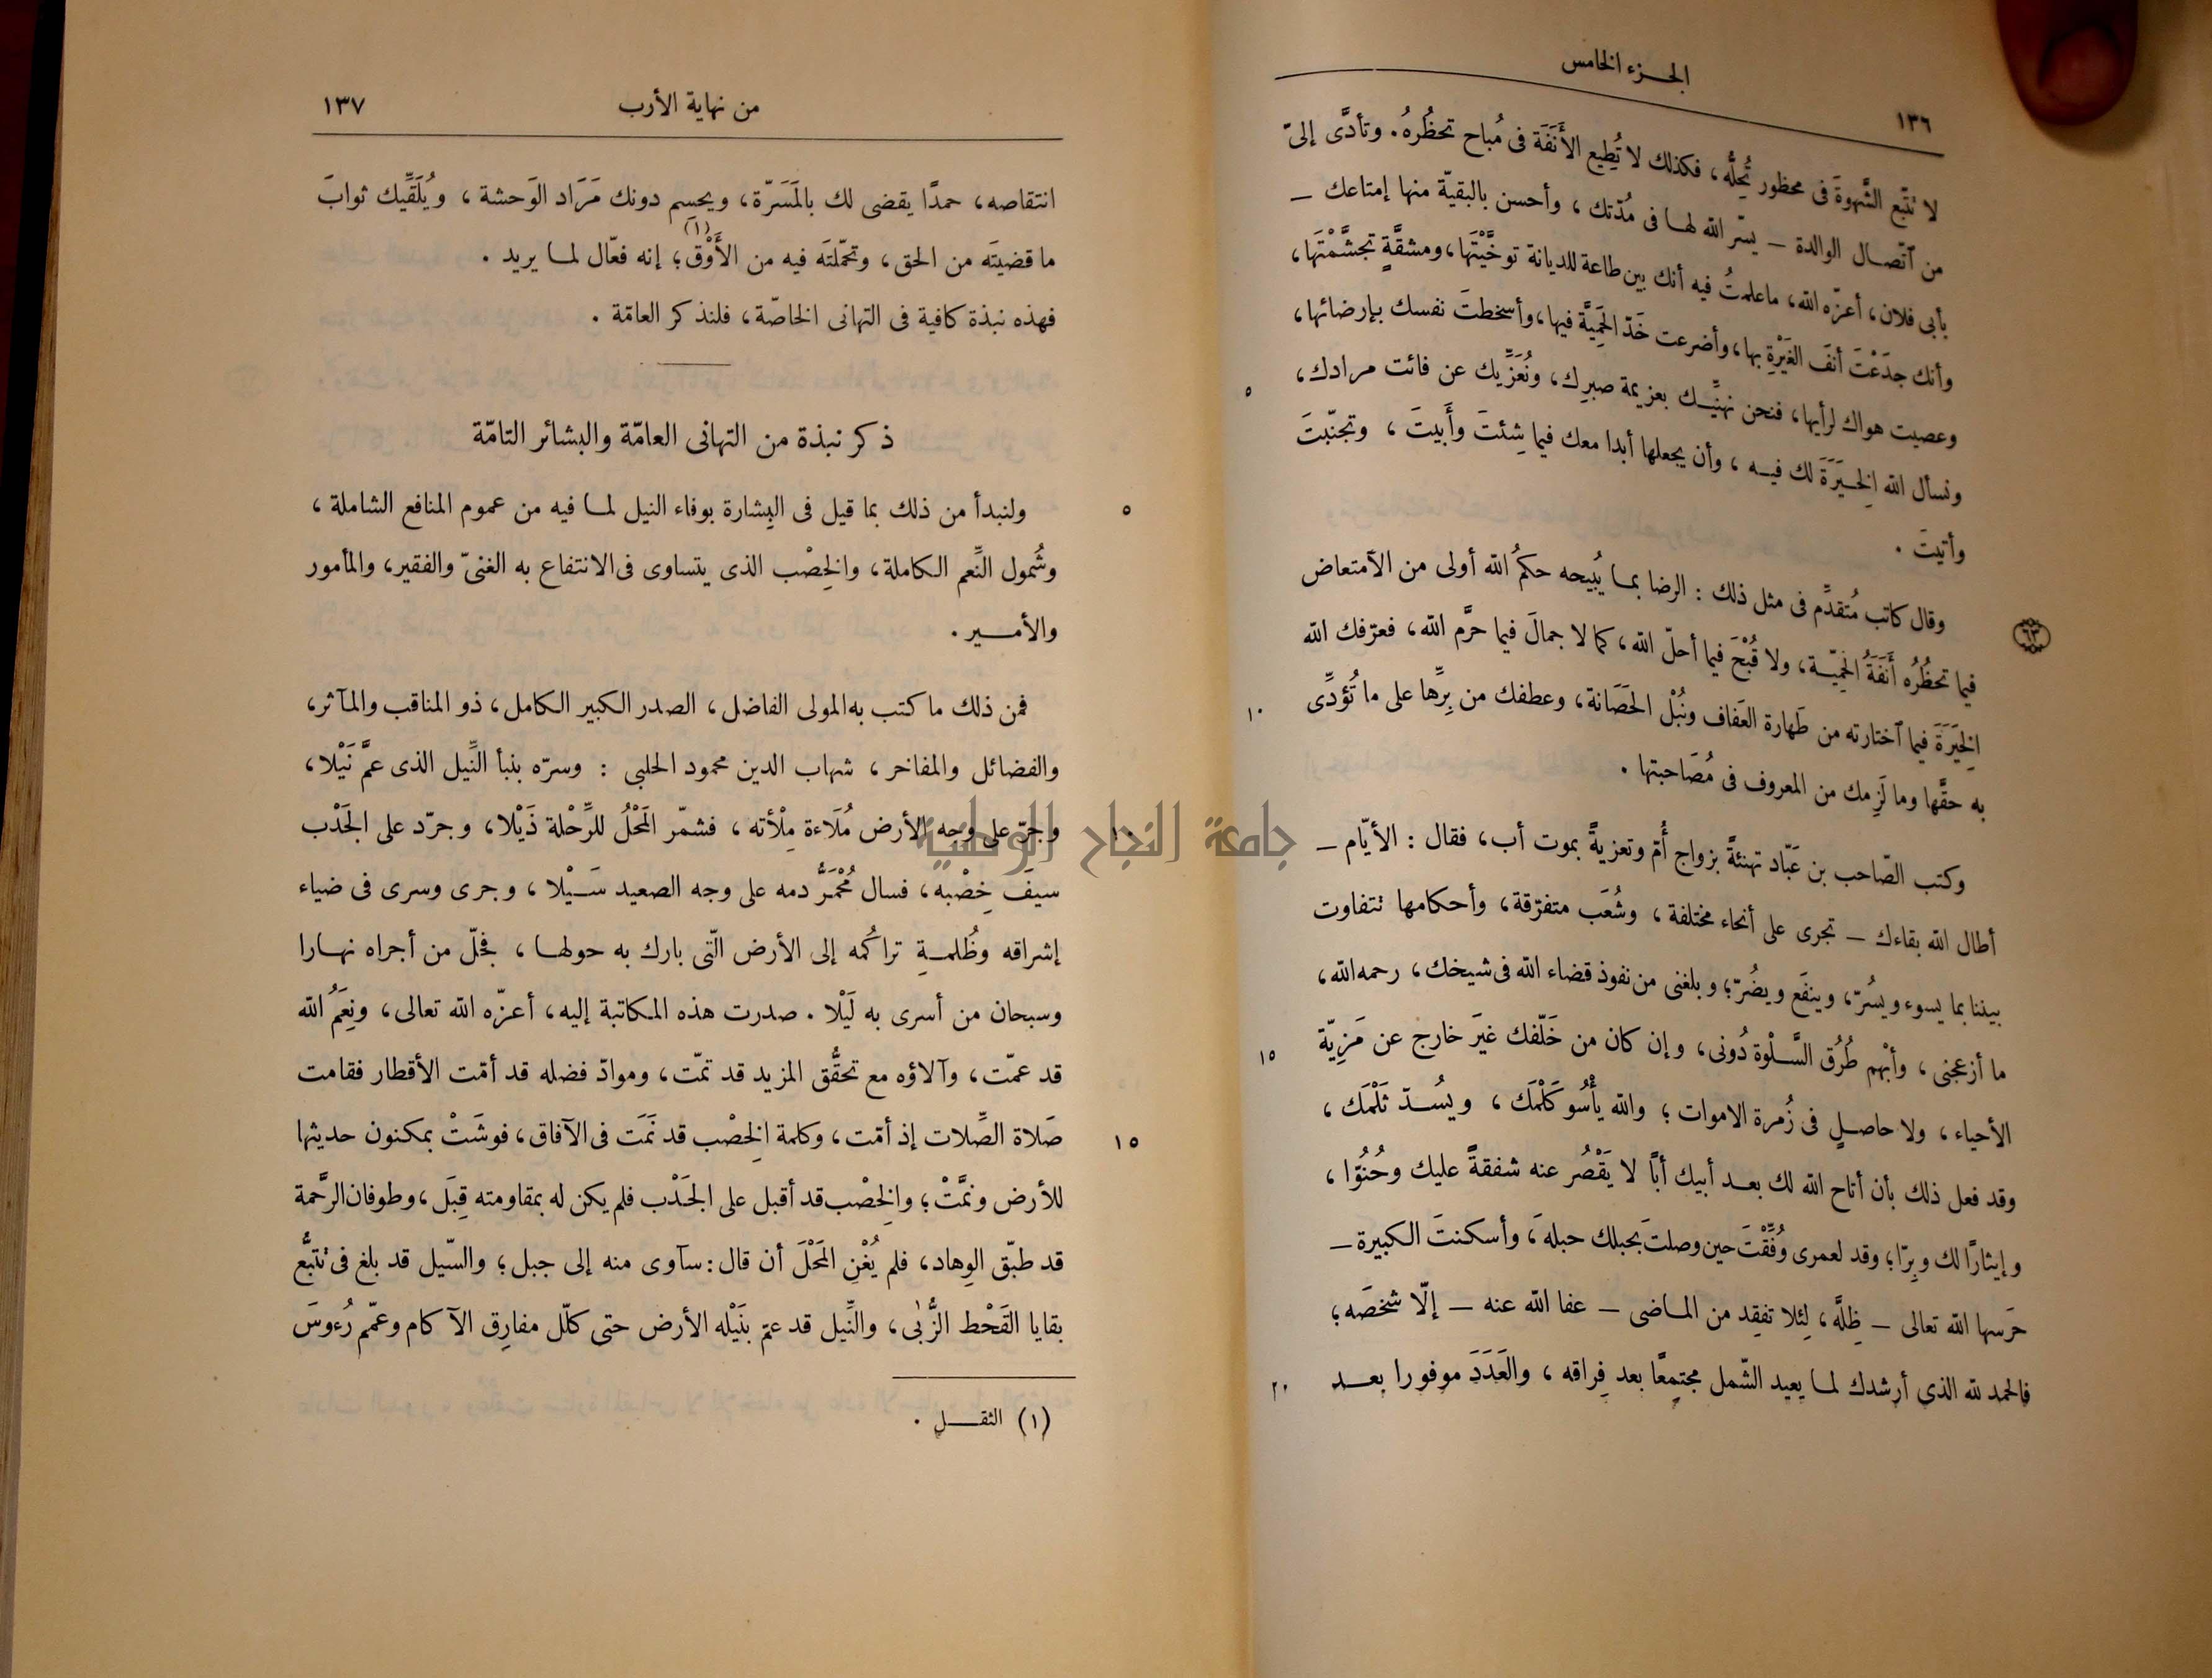 الجزء الخامس
١٣٦
لا تتّبع الشَّهوةَ فى محظور تُحِلُّه، فكذلك لا تُطِيع الأَنَفَة فى مُباح تحظُرهُ. وتأدَّى إلىّ
من ٱتّصال الوالدة – يسّر الله لهـا فى مُدّتك، وأحسن بالبقيّة منها إمتاعك –
بأبى فلان، أعزّه الله، ماعلمتُ فيه أنك بين طاعة للديانة توخَّيْتَها، ومشقَّةٍ تجشَّمْتَها،
وأنك جدَعْتَ أنفَ الغَيْرةِ بها، وأضرعت خَدّ الحَمِيَّة فيها، وأسخطتَ نفسك بإرضائها،
وعصيت هواك لرأيها، فنحن نهنِّيـك بعزيمة صبرِك، ونُعَزِّيك عن فائت مرادك،
٥
ونسأل الله الخِـيَرَةَ لك فيـه، وأن يجعلها أبدا معك فيما شِئتَ وأَبيتَ، وتجنّبتَ
وأتيتَ.
وقال كاتب مُتقدِّم فى مثل ذلك: الرضا بمـا يُبيحه حكمُ الله أولى من الٱمتعاض
٦٣
فيما تحظُرُه أَنَفَةُ الحَمِيّـة، ولا قُبْحَ فيما أحلّ الله، كما لا جمالَ فيما حرَّم الله، فعرّفك الله
الخِيَرَةَ فيما ٱختارته من طَهارة العَفاف ونُبْل الحَصَانة، وعطفك من بِرِّها على ما تُؤدِّى
١٠
به حقَّها وما لَزِمك من المعروف فى مُصَاحبتها.
وكتب الصّاحب بن عَبّاد تهنئةً بزواج أُمّ وتعزيةً بموت أب، فقال: الأيّام –
أطال الله بقاءك – تجرى على أنحاء مختلفة، وشُعَب متفرّقة، وأحكامها تتفاوت
بيننا بما يسوء ويسُرّ، وينفَع ويضُرّ؛ وبلغنى من نفوذ قضاء الله فى شيخك، رحمه الله،
ما أزعجنى، وأبْهم طُرُق السَّلْوة دُونى، وإن كان من خَلّفك غيرَ خارج عن مَزِيّة
١٥
الأحياء، ولا حاصـلٍ فى زُمرة الاموات؛ والله يأْسُو كَلْمَك، ويسُـدّ ثَلْمَك،
وقد فعل ذلك بأن أتاح الله لك بعـد أبيك أبًا لا يَقْصُر عنه شفقةً عليك وحُنُوّا،
وإيثارًا لك وبِرّا؛ وقد لعمرى وُفِّقْتَ حين وصلتَ بحبلك حبلهَ، وأسكنتَ الكبيرة –
حَرَسها الله تعالى – ظِلَّه، لِئلا تفقِد من المـاضى – عفا الله عنه – إلّا شخصَه؛
فالحمد لله الذى أرشدك لمـا يعيد الشّمل مجتمِعًا بعد فِراقه، والعَدَدَ موفورا بعـد
٢٠
من نهاية الأرب
١٣٧
انتقاصه، حمدًا يقضى لك بالمَسَرّة، ويحسِم دونك مَرَاد الوَحشة، ويُلَقِّيك ثوابَ
ما قضيتَه من الحق، وتحمّلتَه فيه من الأَوْق(١)؛ إنه فعّال لمـا يريد.
فهذه نبذة كافية فى التهانى الخاصّة، فلنذكر العامّة.
ذكر نبذة من التهانى العامّة والبشائر التامّة
ولنبدأ من ذلك بما قيل فى البِشارة بوفاء النيل لمـا فيه من عموم المنافع الشاملة،
٥
وشُمول النِّعم الكاملة، والخِصْب الذى يتساوى فى الانتفاع به الغنىّ والفقير، والمأمور
والأمـــير.
فمن ذلك ما كتب به المولى الفاضل، الصدر الكبير الكامل، ذو المناقب والمآثر،
والفضائل والمفاخر، شهاب الدين محمود الحلبي: وسرّه بنبأ النِّيل الذى عمَّ نَيْلا،
وجرّ على وجه الأرض مُلَاءة مِلْأته، فشمّر المَحْلُ للرِّحْلة ذَيْلا، وجرّد على الجَدْب
١٠
جامعة النجاح الوطنية
سيفَ خِصْبه، فسال مُحْمَرُّ دمه على وجه الصعيد سَـيْلا، وجرى وسرى فى ضياء
إشراقه وظُلمـةِ تراكُمه إلى الأرض الّتى بارك به حولهـا، فجلّ من أجراه نهـارا
وسبحان من أسرى به لَيْلا. صدرت هذه المكاتبة إليه، أعزّه الله تعالى، ونِعَمُ الله
قد عمّت، وآلاؤه مع تحقُّق المزيد قد تمّت، وموادّ فضله قد أمّت الأقطار فقامت
صَلاة الصِّلات إذ أمّت، وكلمة الخِصْب قد نَمَت فى الآفاق، فوشَتْ بمكنون حديثها
١٥
للأرض ونمَّتْ؛ والخِصْب قد أقبل على الجَدْب فلم يكن له بمقاومته قِبَل، وطوفان الرَّحمة
قد طبّق الوِهاد، فلم يُغْنِ المَحْلَ أن قال: سآوى منه إلى جبل؛ والسّيل قد بلغ فى تتبُّع
بقايا القَحْط الزُّبٰى، والنِّيل قد عمّ بنَيْله الأرض حتى كلّل مفارِق الآكام وعمّم رُءوسَ
(١) الثقــل.